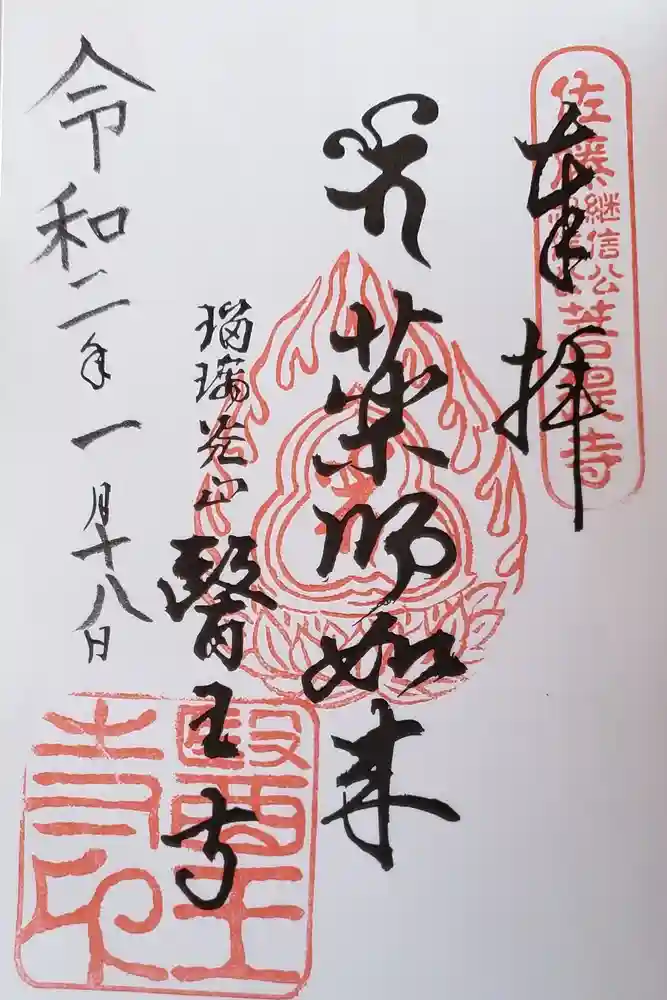 奉拝
佐藤継信公菩提寺
薬師如来
瑠璃光山
醫王寺
醫王寺印
令和二年一月十八日